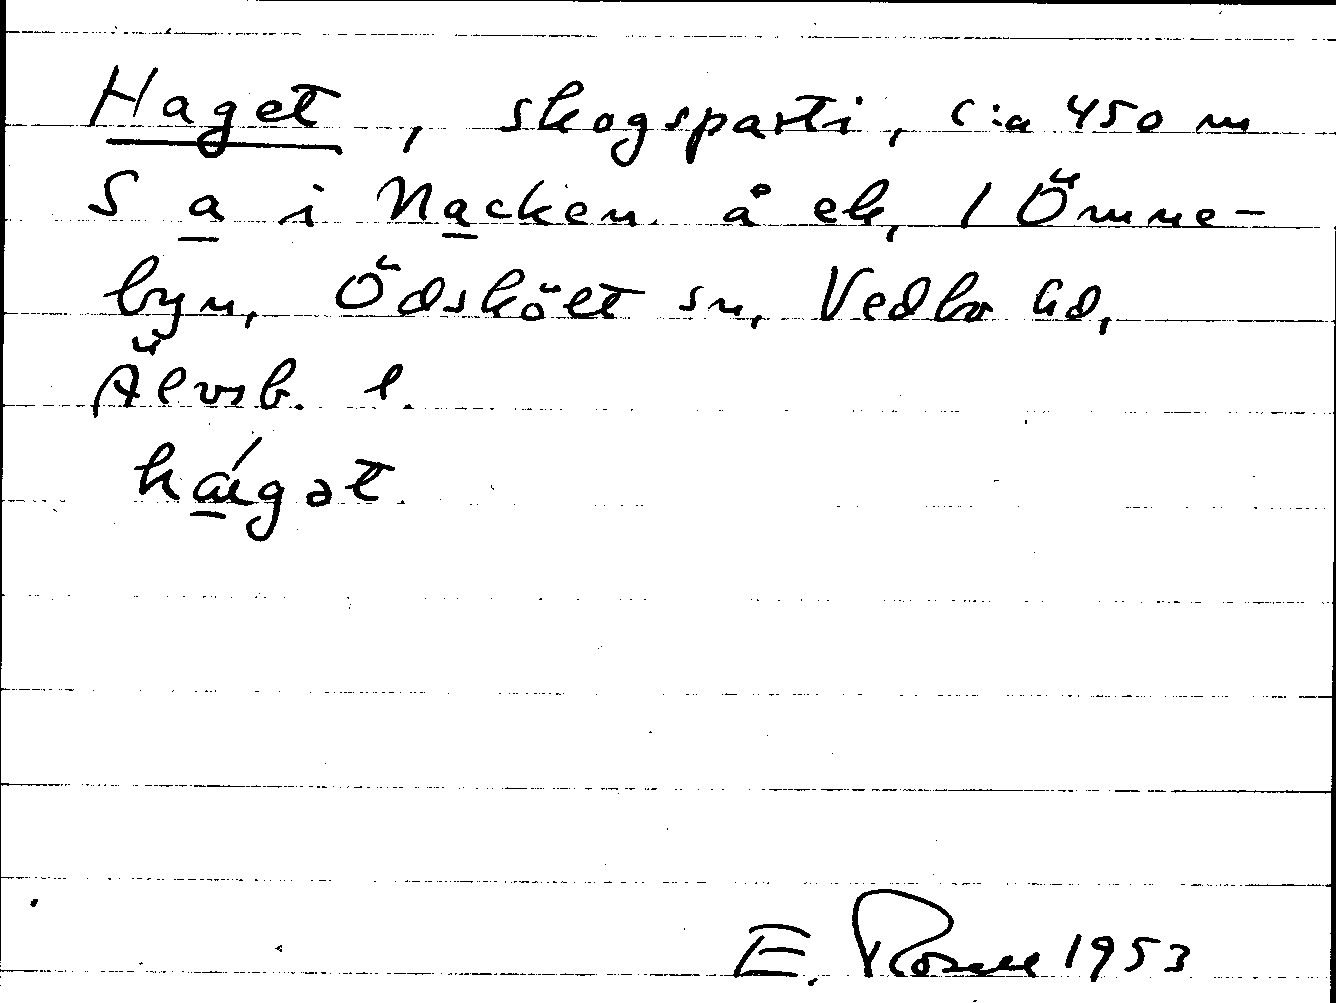 Haget, skogsparti, c:a 450 m
S a i Nacken å ek, 1 Ömme-
byn, Ödskölt sn, Vedbo hd,
Älvsb. l.
hágət
E. Rosell 1953